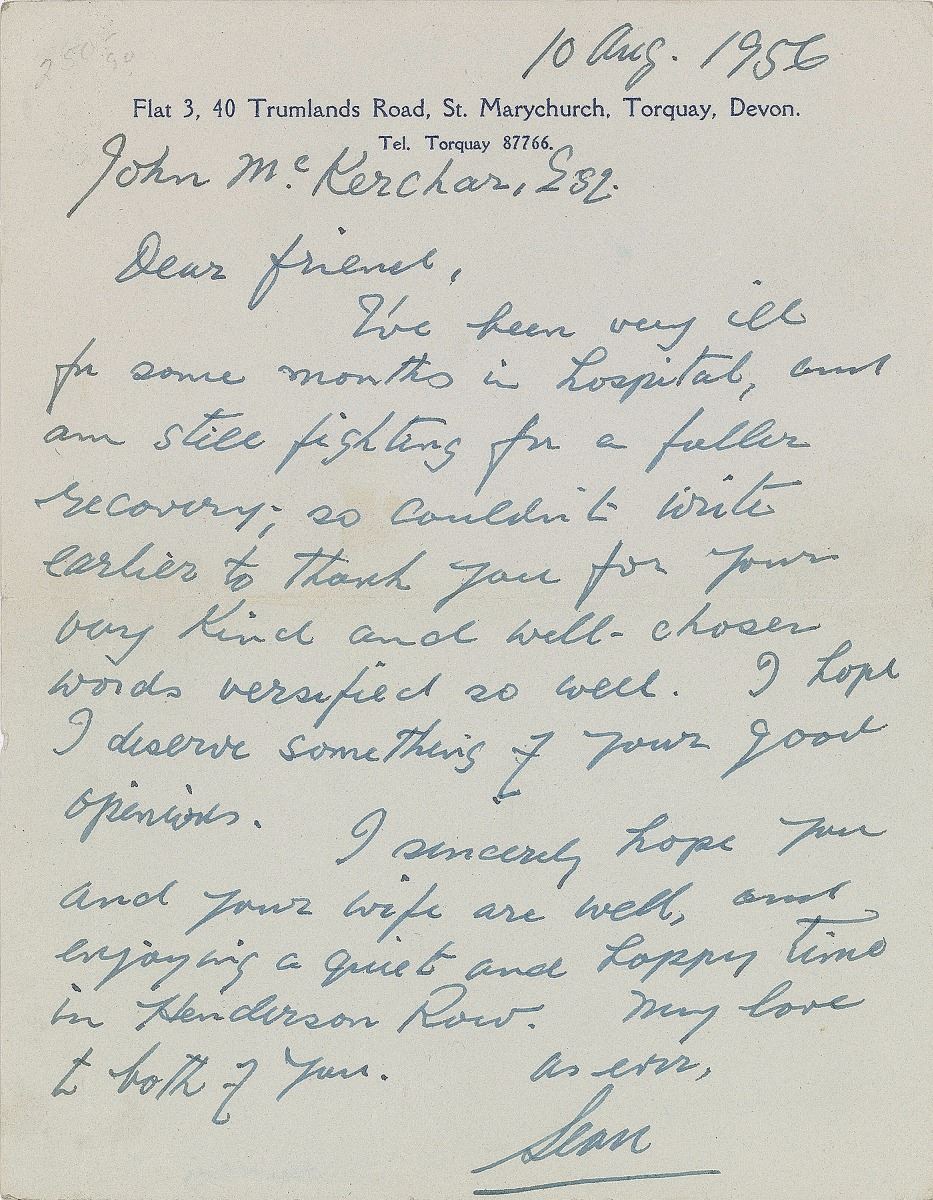 10 Aug. 1956
Flat 3, 40 Trumlands Road, St. Marychurch, Torquay, Devon.
Tel. Torquay 87766.
John Mc. Kerchar, Esq.
Dear friend,
I've been very ill
for some months in hospital, and
am still fighting for a fuller
recovery; so couldn't write
earlier to thank you for your
very kind and well-chosen
words versified so well. I hope
I deserve something of your good
opinions.
I sincerely hope you
and your wife are well, and
enjoying a quiet and happy time
in Henderson Row. My love
to both of you. As ever,
Sean